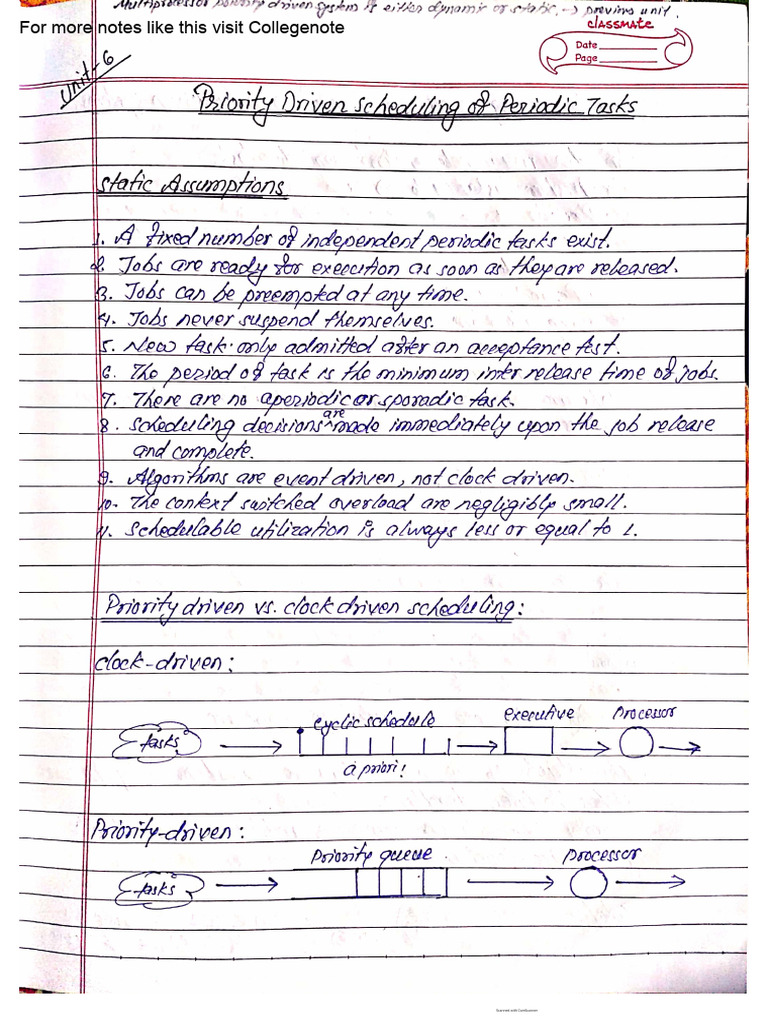 Multiprocessor priority driven system is either dynamic or static. → previous unit.
For more notes like this visit Collegenote
classmate
Date
Page
Unit-6
Priority Driven Scheduling of Periodic Tasks
Static Assumptions
1. A fixed number of independent periodic tasks exist.
2. Jobs are ready for execution as soon as they are released.
3. Jobs can be preempted at any time.
4. Jobs never suspend themselves.
5. New task only admitted after an acceptance test.
6. The period of task is the minimum inter release time of jobs.
7. There are no aperiodic or sporadic task.
8. Scheduling decisions are made immediately upon the job release
and complete.
9. Algorithms are event driven, not clock driven.
10. The context switched overload are negligibly small.
11. Schedulable utilization is always less or equal to 1.
Priority driven vs. clock driven scheduling:
clock-driven:
tasks → cyclic schedule → executive → Processor →
a priori!
Priority-driven:
tasks → Priority queue → processor →
Scanned with CamScanner